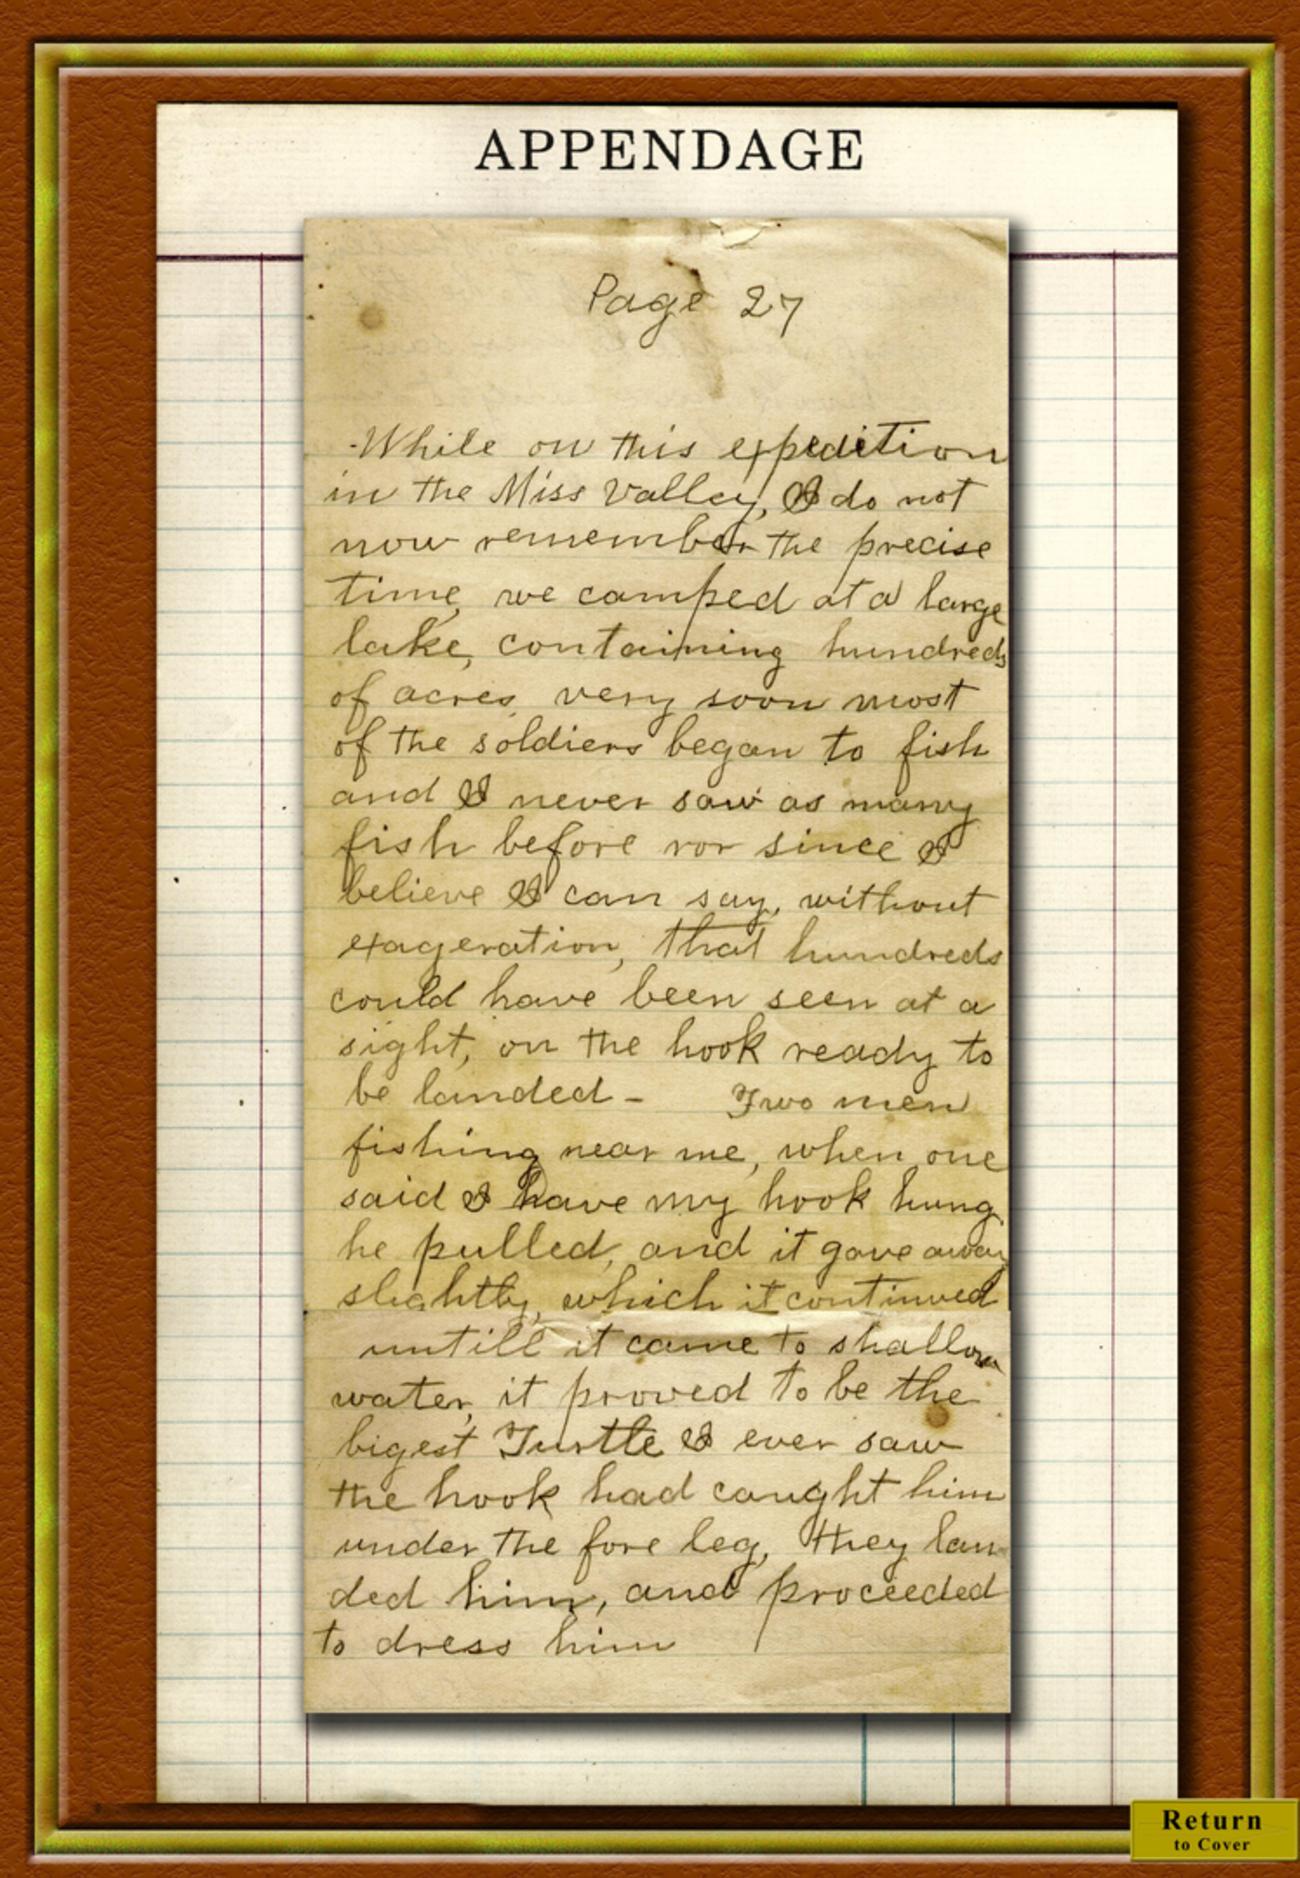 APPENDAGE
Page 27
-While on this expedition
in the Miss Valley, I do not
now remember the precise
time, we camped at a large
lake, containing hundreds
of acres, very soon most
of the soldiers began to fish
and I never saw as many
fish before nor since I
believe I can say, without
exageration, that hundreds
could have been seen at a
sight, on the hook ready to
be landed - Two men
fishing near me, when one
said I have my hook hung
he pulled, and it gave away
slightly, which it continued
untill it came to shallow
water, it proved to be the
bigest Turtle I ever saw
the hook had caught him
under the fore leg, they lan
ded him, and proceeded
to dress him
Return
to Cover